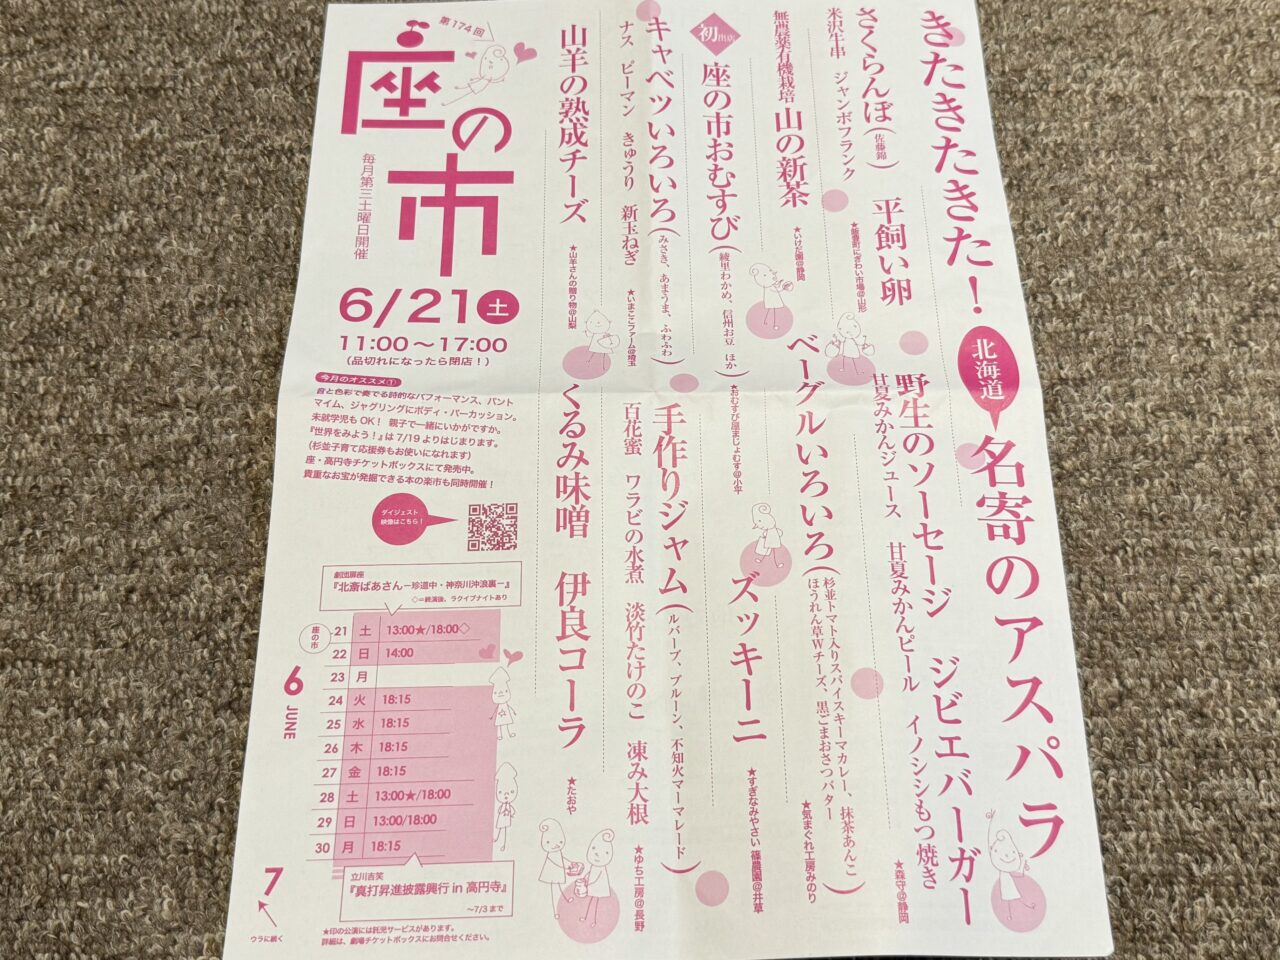 きたきたきた！
北海道
名寄のアスパラ
さくらんぼ(佐藤錦)
平飼い卵
米沢牛串 ジャンボフランク
★飯豊町にぎわい市場@山形
野生のソーセージ ジビエバーガー
甘夏みかんジュース 甘夏みかんピール イノシシもつ焼き
★森守@静岡
無農薬有機栽培 山の新茶
★いけだ園@静岡
ベーグルいろいろ
(杉並トマト入りスパイスキーマカレー、抹茶あんこ
ほうれん草Wチーズ、黒ごまおさつバター)
★気まぐれ工房みのり
初出店
座の市おむすび
(綾里わかめ、信州お豆 ほか)
★おむすび屋まじょむす@小平
ズッキーニ
★すぎなみやさい 篠農園@井草
キャベツいろいろ
(みさき、あまうま、ふわふわ)
ナス ピーマン きゅうり 新玉ねぎ
★いまここファーム@埼玉
手作りジャム
(ルバーブ、プルーン、不知火マーマレード)
百花蜜 ワラビの水煮 淡竹たけのこ 凍み大根
★ゆち工房@長野
山羊の熟成チーズ
★山羊さんの贈り物@山梨
くるみ味噌 伊良コーラ
★たおや
第174回
座の市
毎月第三土曜日開催
6/21土
11:00～17:00
(品切れになったら閉店！)
今月のオススメ①
音と色彩で奏でる詩的なパフォーマンス、パント
マイム、ジャグリングにボディ・パーカッション。
未就学児もOK！ 親子で一緒にいかがですか。
『世界をみよう！』は7/19よりはじまります。
(杉並子育て応援券もお使いになれます)
座・高円寺チケットボックスにて発売中。
貴重なお宝が発掘できる本の楽市も同時開催！
ダイジェスト
映像はこちら！
劇団扉座
『北斎ばあさん―珍道中・神奈川沖浪裏―』
◇=終演後、ラクイブナイトあり
座の市
6 JUNE
21 土 13:00★/18:00◇
22 日 14:00
23 月
24 火 18:15
25 水 18:15
26 木 18:15
27 金 18:15
28 土 13:00★/18:00
29 日 13:00/18:00
30 月 18:15
立川吉笑
『真打昇進披露興行 in 高円寺』
～7/3まで
7
ウラに続く
★印の公演には託児サービスがあります。
詳細は、劇場チケットボックスにお問合せください。